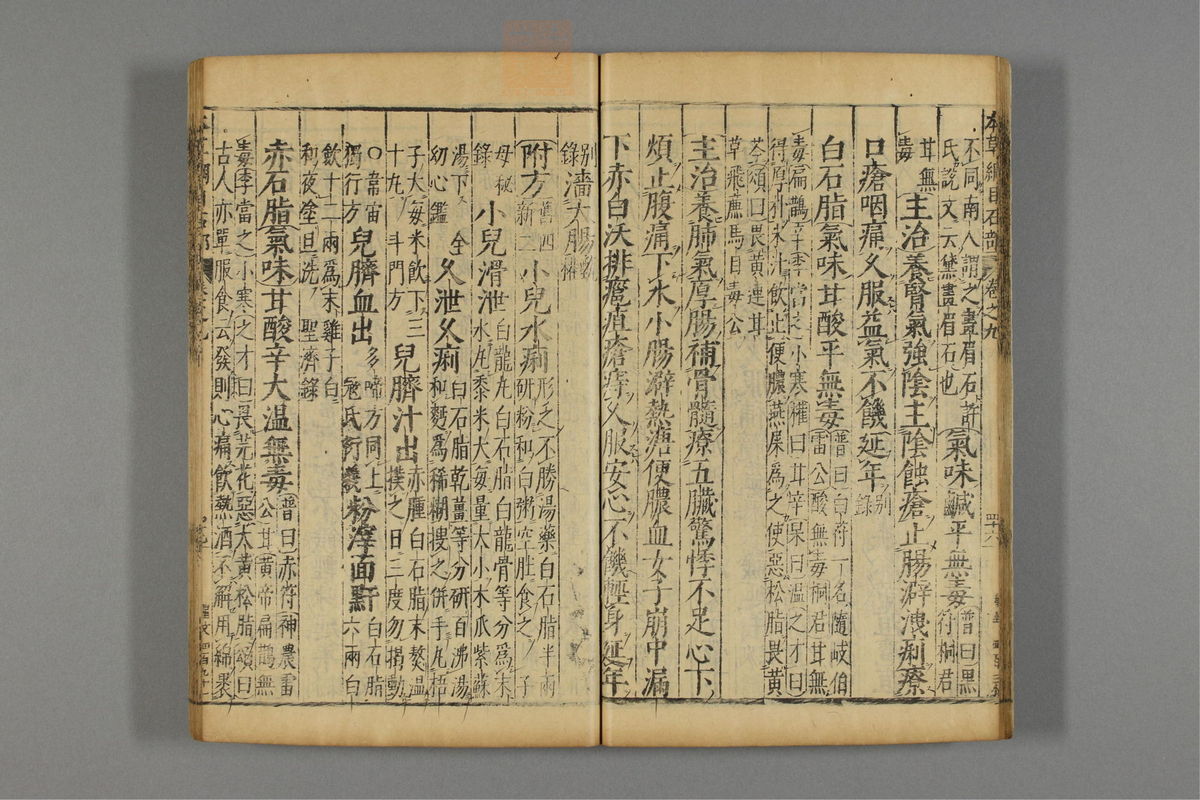 本草綱目石部 卷之九
不同南人謂之畫眉石許
氏說文云黛畫眉石也
氣味鹹平無毒
普曰黑
符桐君
甘無
毒
主治養腎氣強陰主陰蝕瘡止腸澼洩痢療
口瘡咽痛久服益氣不饑延年
別
錄
白石脂
氣味甘酸平無毒
普曰白符一名隨岐伯
雷公酸無毒桐君甘無
毒扁鵲辛李當之小寒權曰甘辛杲曰溫之才曰
得厚朴米汁飲止便膿燕屎爲之使惡松脂畏黃
芩頌曰畏黃連甘
草飛廉馬目毒公
主治養肺氣厚腸補骨髓療五臟驚悸不足心下
煩止腹痛下水小腸澼熱溏便膿血女子崩中漏
下赤白沃排癰疽瘡痔久服安心不饑輕身延年
別
錄
濇大腸
甄
權
附方
舊四
新二
小兒水痢
形羸不勝湯藥白石脂半兩
研粉和白粥空肚食之 子
母秘
錄
小兒滑泄
白龍丸白石脂白龍骨等分爲末
水丸黍米大每量大小木瓜紫蘇
湯下 全
幼心鑑
久泄久痢
白石脂乾薑等分研百沸湯
和麪爲稀糊搜之併手丸梧
子大每米飲下三
十丸 斗門方
兒臍汁出
赤腫白石脂末熬溫
撲之日三度勿揭動
○韋宙
獨行方
兒臍血出
多啼方同上
寇氏衍義
粉滓面䵟
白石脂
六兩白
斂十二兩爲末雞子白
和夜塗旦洗 聖濟錄
赤石脂
氣味甘酸辛大溫無毒
普曰赤符神農雷
公甘黃帝扁鵲無
毒李當之小寒之才曰畏芫花惡大黃松脂頌曰
古人亦單服食云發則心痛飲熱酒不解用綿裹